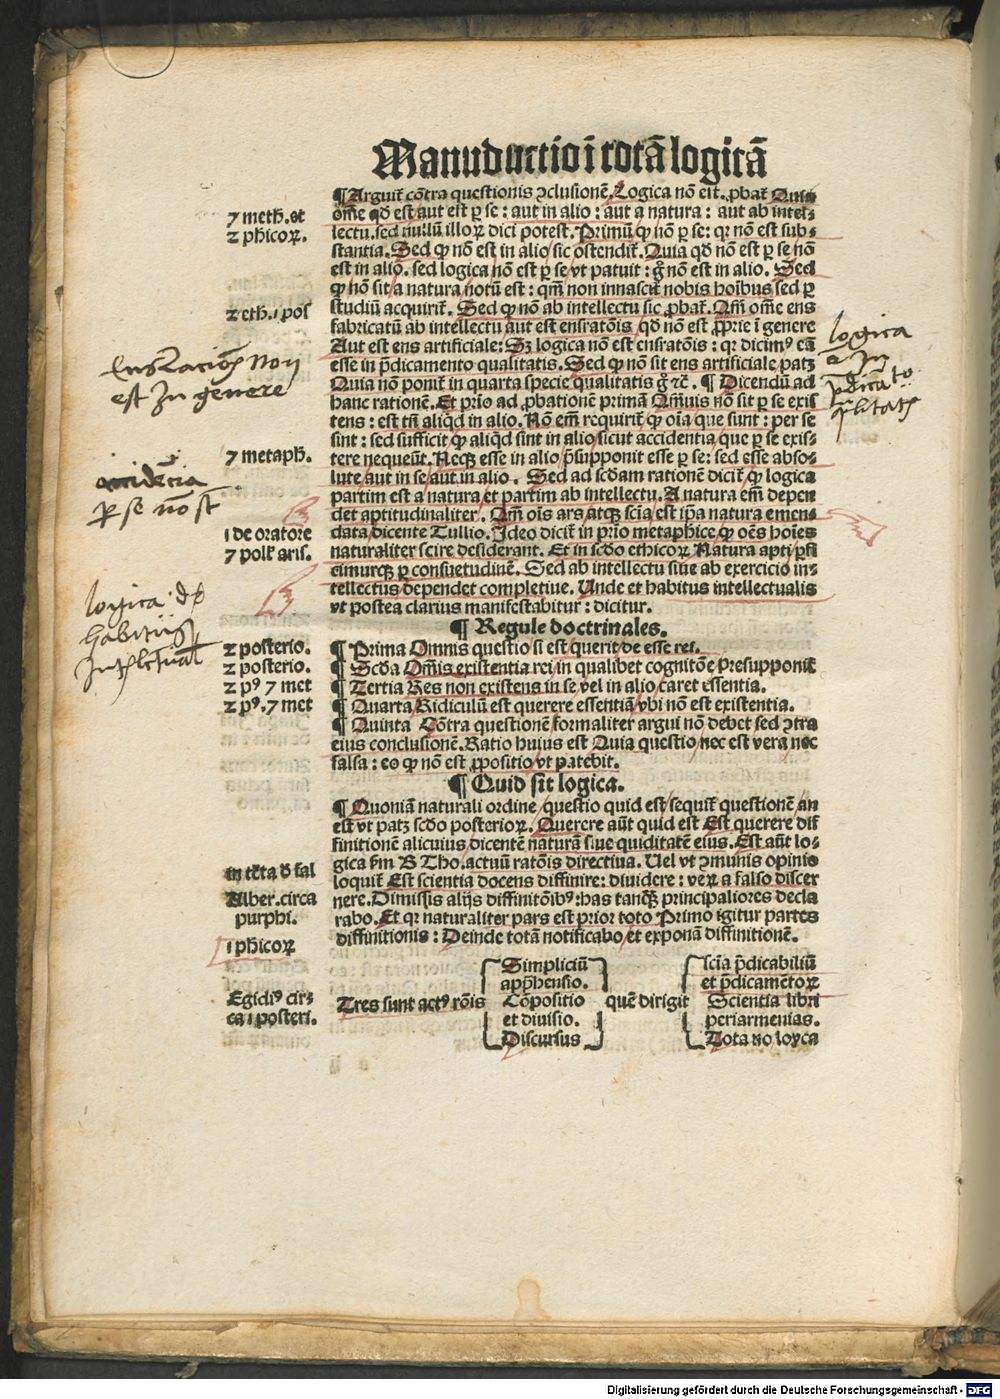 Manuductio ī totā logicā
¶ Arguit̄ cōtra questionis ɔclusionē. Logica nō est. ꝓbat̄ Quia
om̄e qd̄ est aut est ꝑ se : aut in alio : aut a natura : aut ab intel⸗
lectu. sed nullū illoꝝ dici potest. Primū ꝙ nō ꝑ se: qꝛ nō est sub⸗
stantia. Sed ꝙ nō est in alio sic ostendit̄. Quia qd̄ nō est ꝑ se nō
est in alio. sed logica nō est ꝑ se vt patuit : gͦ nō est in alio. Sed
ꝙ nō sit a natura notū est : qm̄ non innascit̄ nobis hoībus sed ꝑ
studiū acquirit̄. Sed ꝙ nō ab intellectu sic ꝓbat̄. Qm̄ om̄e ens
fabricatū ab intellectu aut est ensratōis qd̄ nō est ꝓprie ī genere
Aut est ens artificiale: Sꝫ logica nō est ensratōis : qꝛ dicimꝰ eā
esse in p̄dicamento qualitatis. Sed ꝙ nō sit ens artificiale patꝫ
Quia nō ponit̄ in quarta specie qualitatis gͦ ⁊c̄. ¶ Dicendū ad
hanc rationē. Et prīo ad ꝓbationē primā Qm̄uis nō sit ꝑ se exis
tens : est tn̄ aliqd̄ in alio. Nō em̄ requirit̄ ꝙ oīa que sunt : per se
sint : sed sufficit ꝙ aliqd̄ sint in alio sicut accidentia que ꝑ se exis⸗
tere nequeūt. Neqꝫ esse in alio p̄supponit esse ꝑ se: sed esse abso⸗
lute aut in se aut in alio . Sed ad scd̄am rationē dicit̄ ꝙ logica
partim est a natura et partim ab intellectu. A natura em̄ depen
det aptitudinaliter. Qm̄ oīs ars atqꝫ scīa est ip̄a natura emen⸗
data dicente Tullio. Ideo dicit̄ in prīo metaphice ꝙ oēs hoīes
naturaliter scire desiderant. Et in scd̄o ethicoꝝ Natura apti ꝑfi
cimurqꝫ ꝑ consuetudinē. Sed ab intellectu siue ab exercicio in⸗
tellectus dependet completiue. Unde et habitus intellectualis
vt postea clarius manifestabitur : dicitur.
¶ Regule doctrinales.
¶ Prima Omnis questio si est querit de esse rei.
¶ Scd̄a Om̄is existentia rei in qualibet cognitōe presupponit̄
¶ Tertia Res non existens in se vel in alio caret essentia.
¶ Quarta Ridiculū est querere essentiā vbi nō est existentia.
¶ Quinta Cōtra questionē formaliter argui nō debet sed ɔtra
eius conclusionē. Ratio huius est Quia questio nec est vera nec
falsa : eo ꝙ nō est ꝓpositio vt patebit.
¶ Quid sit logica.
¶ Quoniā naturali ordine questio quid est sequit̄ questionē an
est vt patꝫ scd̄o posterioꝝ. Querere aūt quid est Est querere dif
finitionē alicuius dicentē naturā siue quiditatē eius. Est aūt lo⸗
gica scd̄m B Tho. actuū ratōis directiua. Uel vt ɔmunis opinio
loquit̄ Est scientia docens diffinire: diuidere : veꝝ a falso discer
nere. Dimissis alijs diffinitōibꝰ: has tanqꝫ principaliores decla
rabo. Et qꝛ naturaliter pars est prior toto Primo igitur partes
diffinitionis : Deinde totā notificabo et exponā diffinitionē.
Tres sunt actꝰ rōis
Simpliciū
appr̄hensio.
Cōpositio
et diuisio.
Discursus
quē dirigit
scīa p̄dicabiliū
et p̄dicamētoꝝ
Scientia libri
periarmenias.
Tota no loyca
7 meth. et
2 phicoꝝ.
2 eth. 1 pos
7 metaph.
1 de oratore
7 polit̄ aris.
2 posterio.
2 posterio.
2 pꝰ 7 met
2 pꝰ. 7 met
Alber. circa
purphi.
1 phicoꝝ
Egidiꝰ cir⸗
ca 1 posteri.
Ens racōis non
est In genere
accidēcia
ꝑ se nō st̄
logica dr̄
habitus
Intellectual
logica
ē In
p̄dicāto
q̄litatis
Digitalisierung gefördert durch die Deutsche Forschungsgemeinschaft - DFG